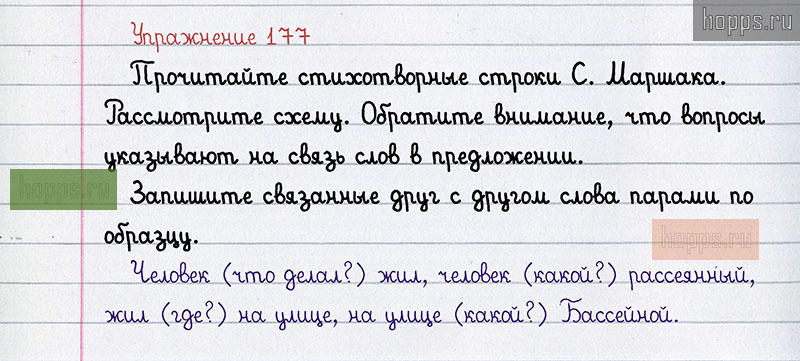 hopps.ru
Упражнение 177
Прочитайте стихотворные строки С. Маршака.
Рассмотрите схему. Обратите внимание, что вопросы
указывают на связь слов в предложении.
hopps.ru
Запишите связанные друг с другом слова парами по
образцу.
hopps.ru
Человек (что делал?) жил, человек (какой?) рассеянный,
жил (где?) на улице, на улице (какой?) Бассейной.